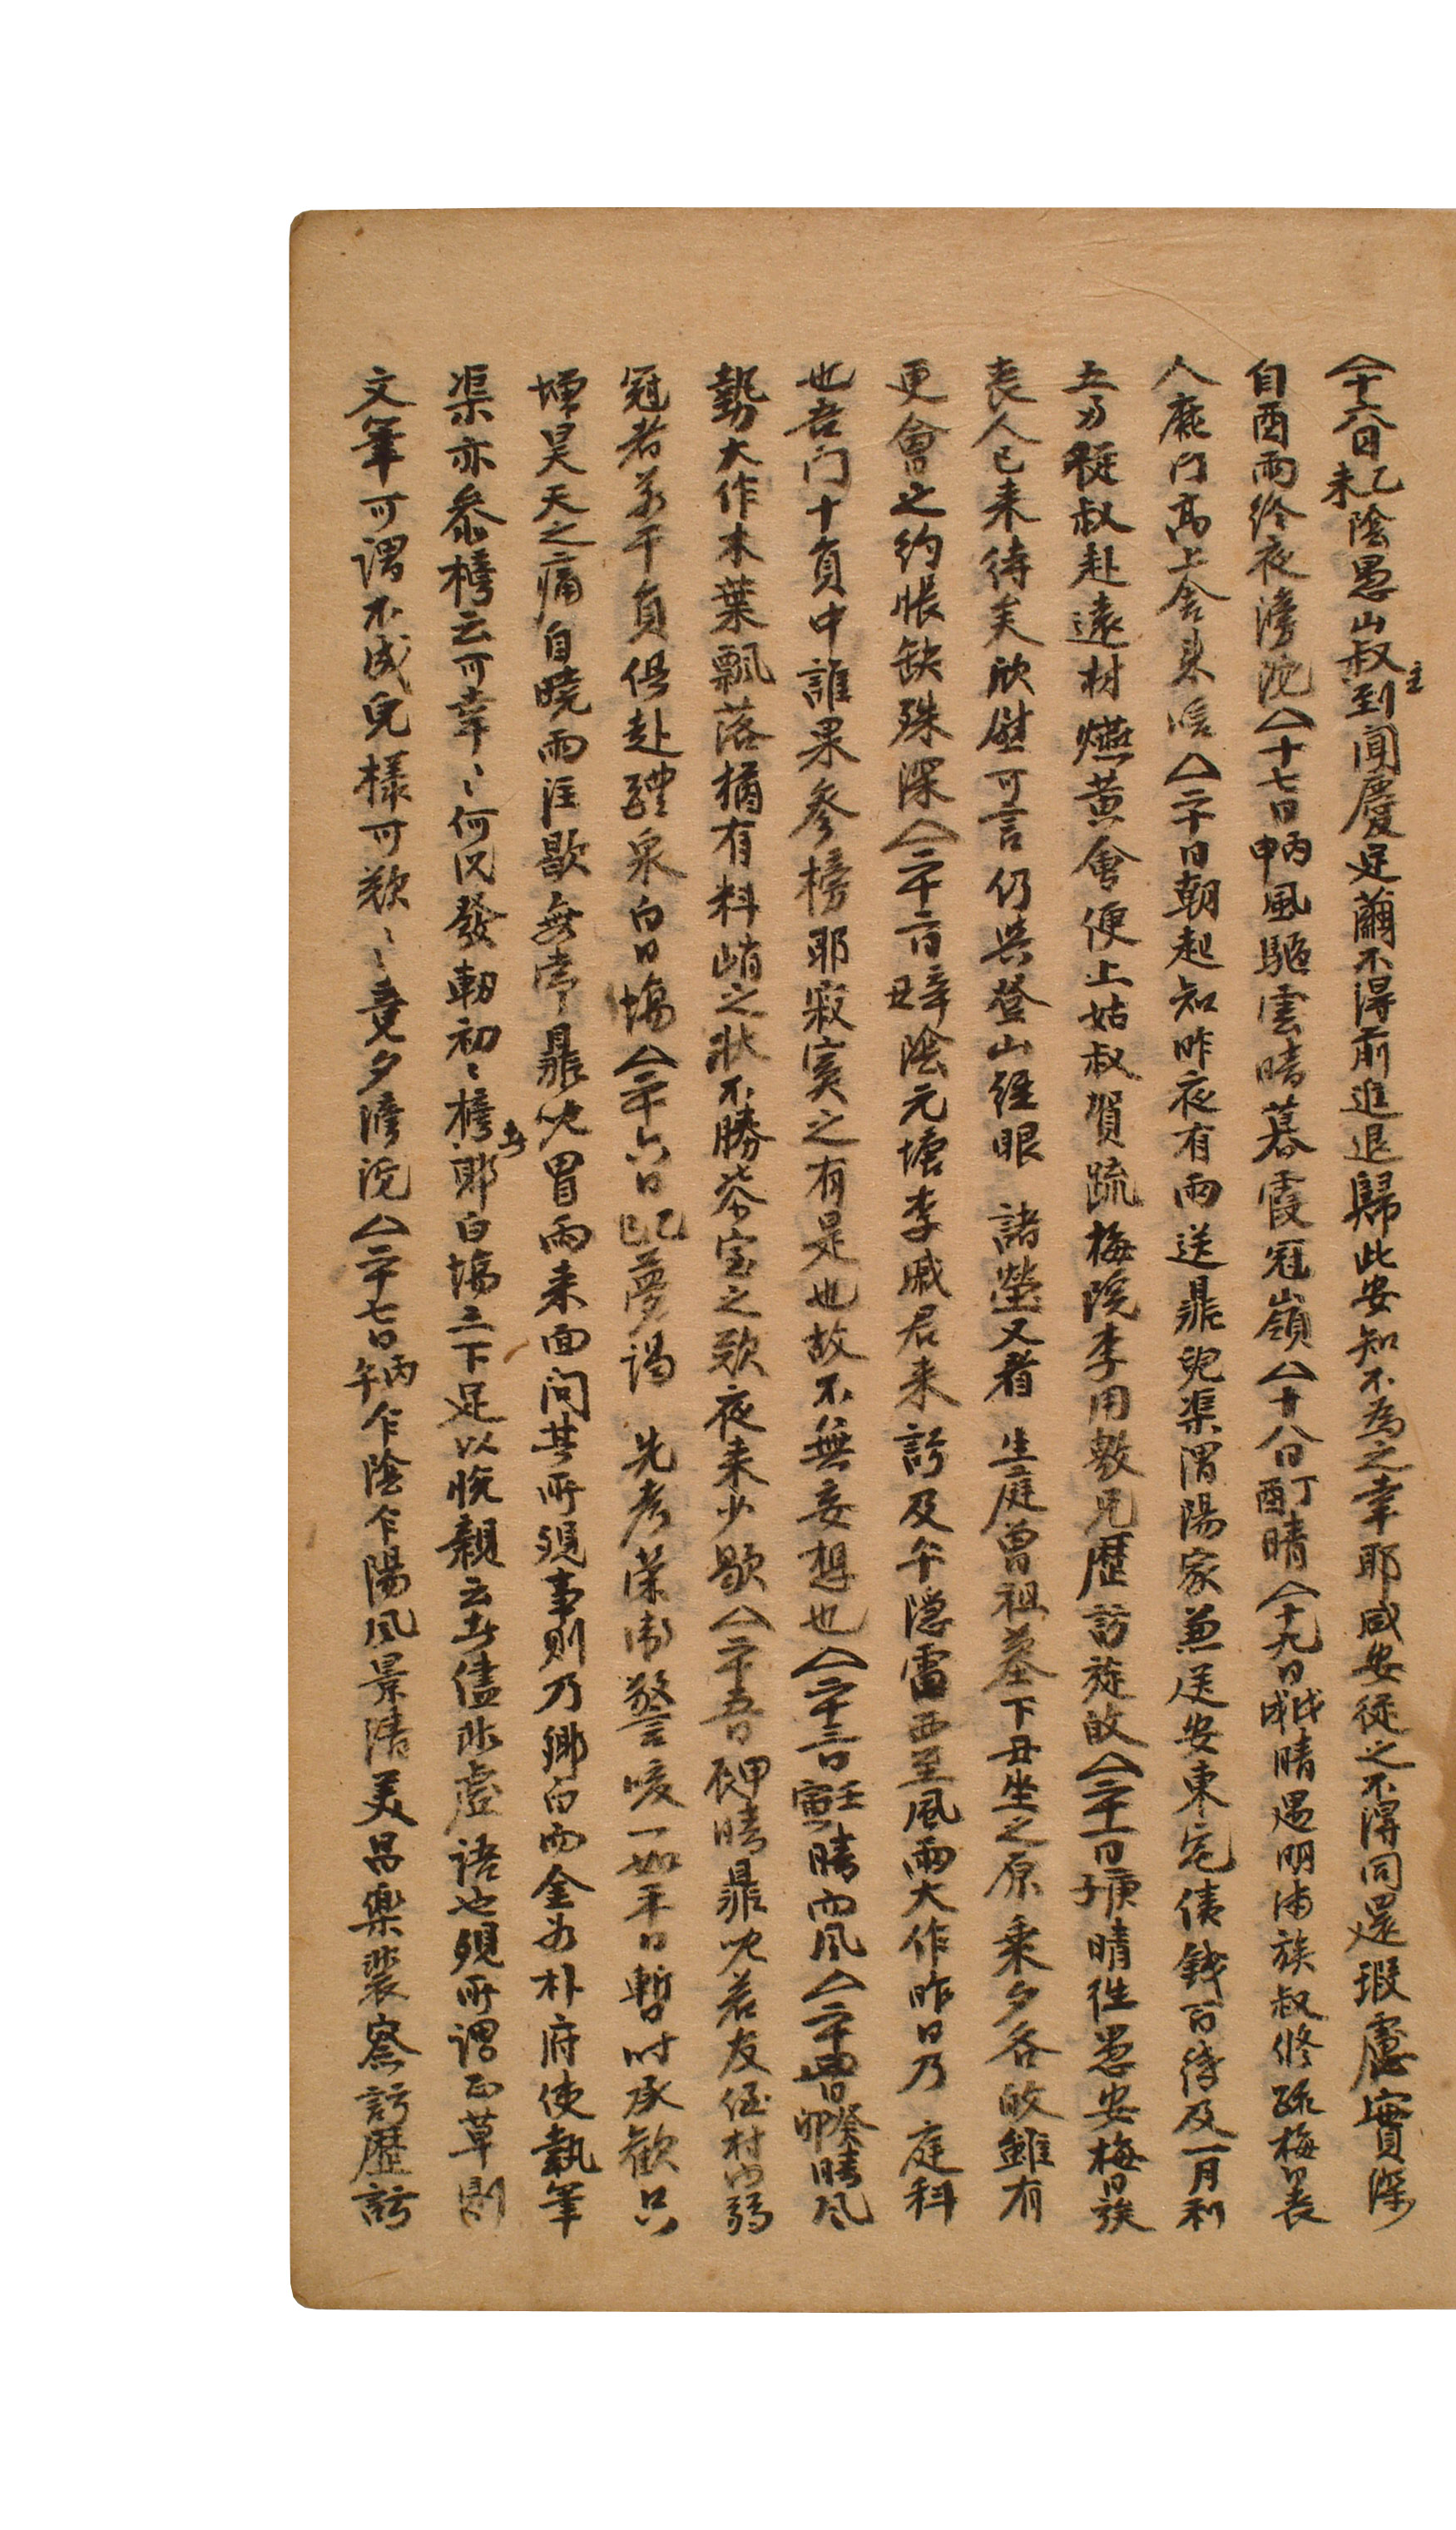 十六日乙未陰愚山叔主到聞慶足繭不得前進退歸此安知不為之幸耶咸安從之不得同還瑕慮實深
自酉雨終夜滂沱十七日丙申風驅雲晴暮霞冠嶺十八日丁酉晴十九日戊戌晴遇明浦族叔修疏梅
人鹿门高上舍來二十日朝起知昨夜有雨送鼎兒渠渭陽家兼送安東宅債錢百待及一月利
五刀從叔赴遠村燕黃會便上姑叔賀疏梅院李用敷兄歷訪旋故二十一日庚子晴往安梅日族
喪人已来待矣欣慰可言仍与登山經眼諸塋又省 生庭曾祖墓下丑坐之原乘夕各故雖有
更會之約悵缺殊深二十二日辛丑陰元塘李戚君来訪及午隱雷西至風雨大作昨日乃 庭科
也吾门十員中誰果參榜耶寂寞之有是也故不無妄想也二十三日壬寅晴而风二十四日癸卯晴风
勢大作木葉飄落猶有料峭之狀不勝 之歎夜来少歇二十五日甲辰晴鼎児若友侄村内弱
冠者若干員俱赴醴泉白日場二十六日乙巳夢謁 先考榮衛警咳一如平日暫时承歡只
增昊天之痛自曉雨注歇無常鼎児冒雨来面问其所現事則乃鄉白而金為朴府使執筆
渠亦參榜云可幸〻何况發軔初〻榜 耶白場二下足以悅親云者儘非虛語也現所謂正草則
文筆可謂不成兒樣可歎〻〻竟夕滂沱二十七日丙午乍陰乍陽风景清美昌樂裴察訪歷訪